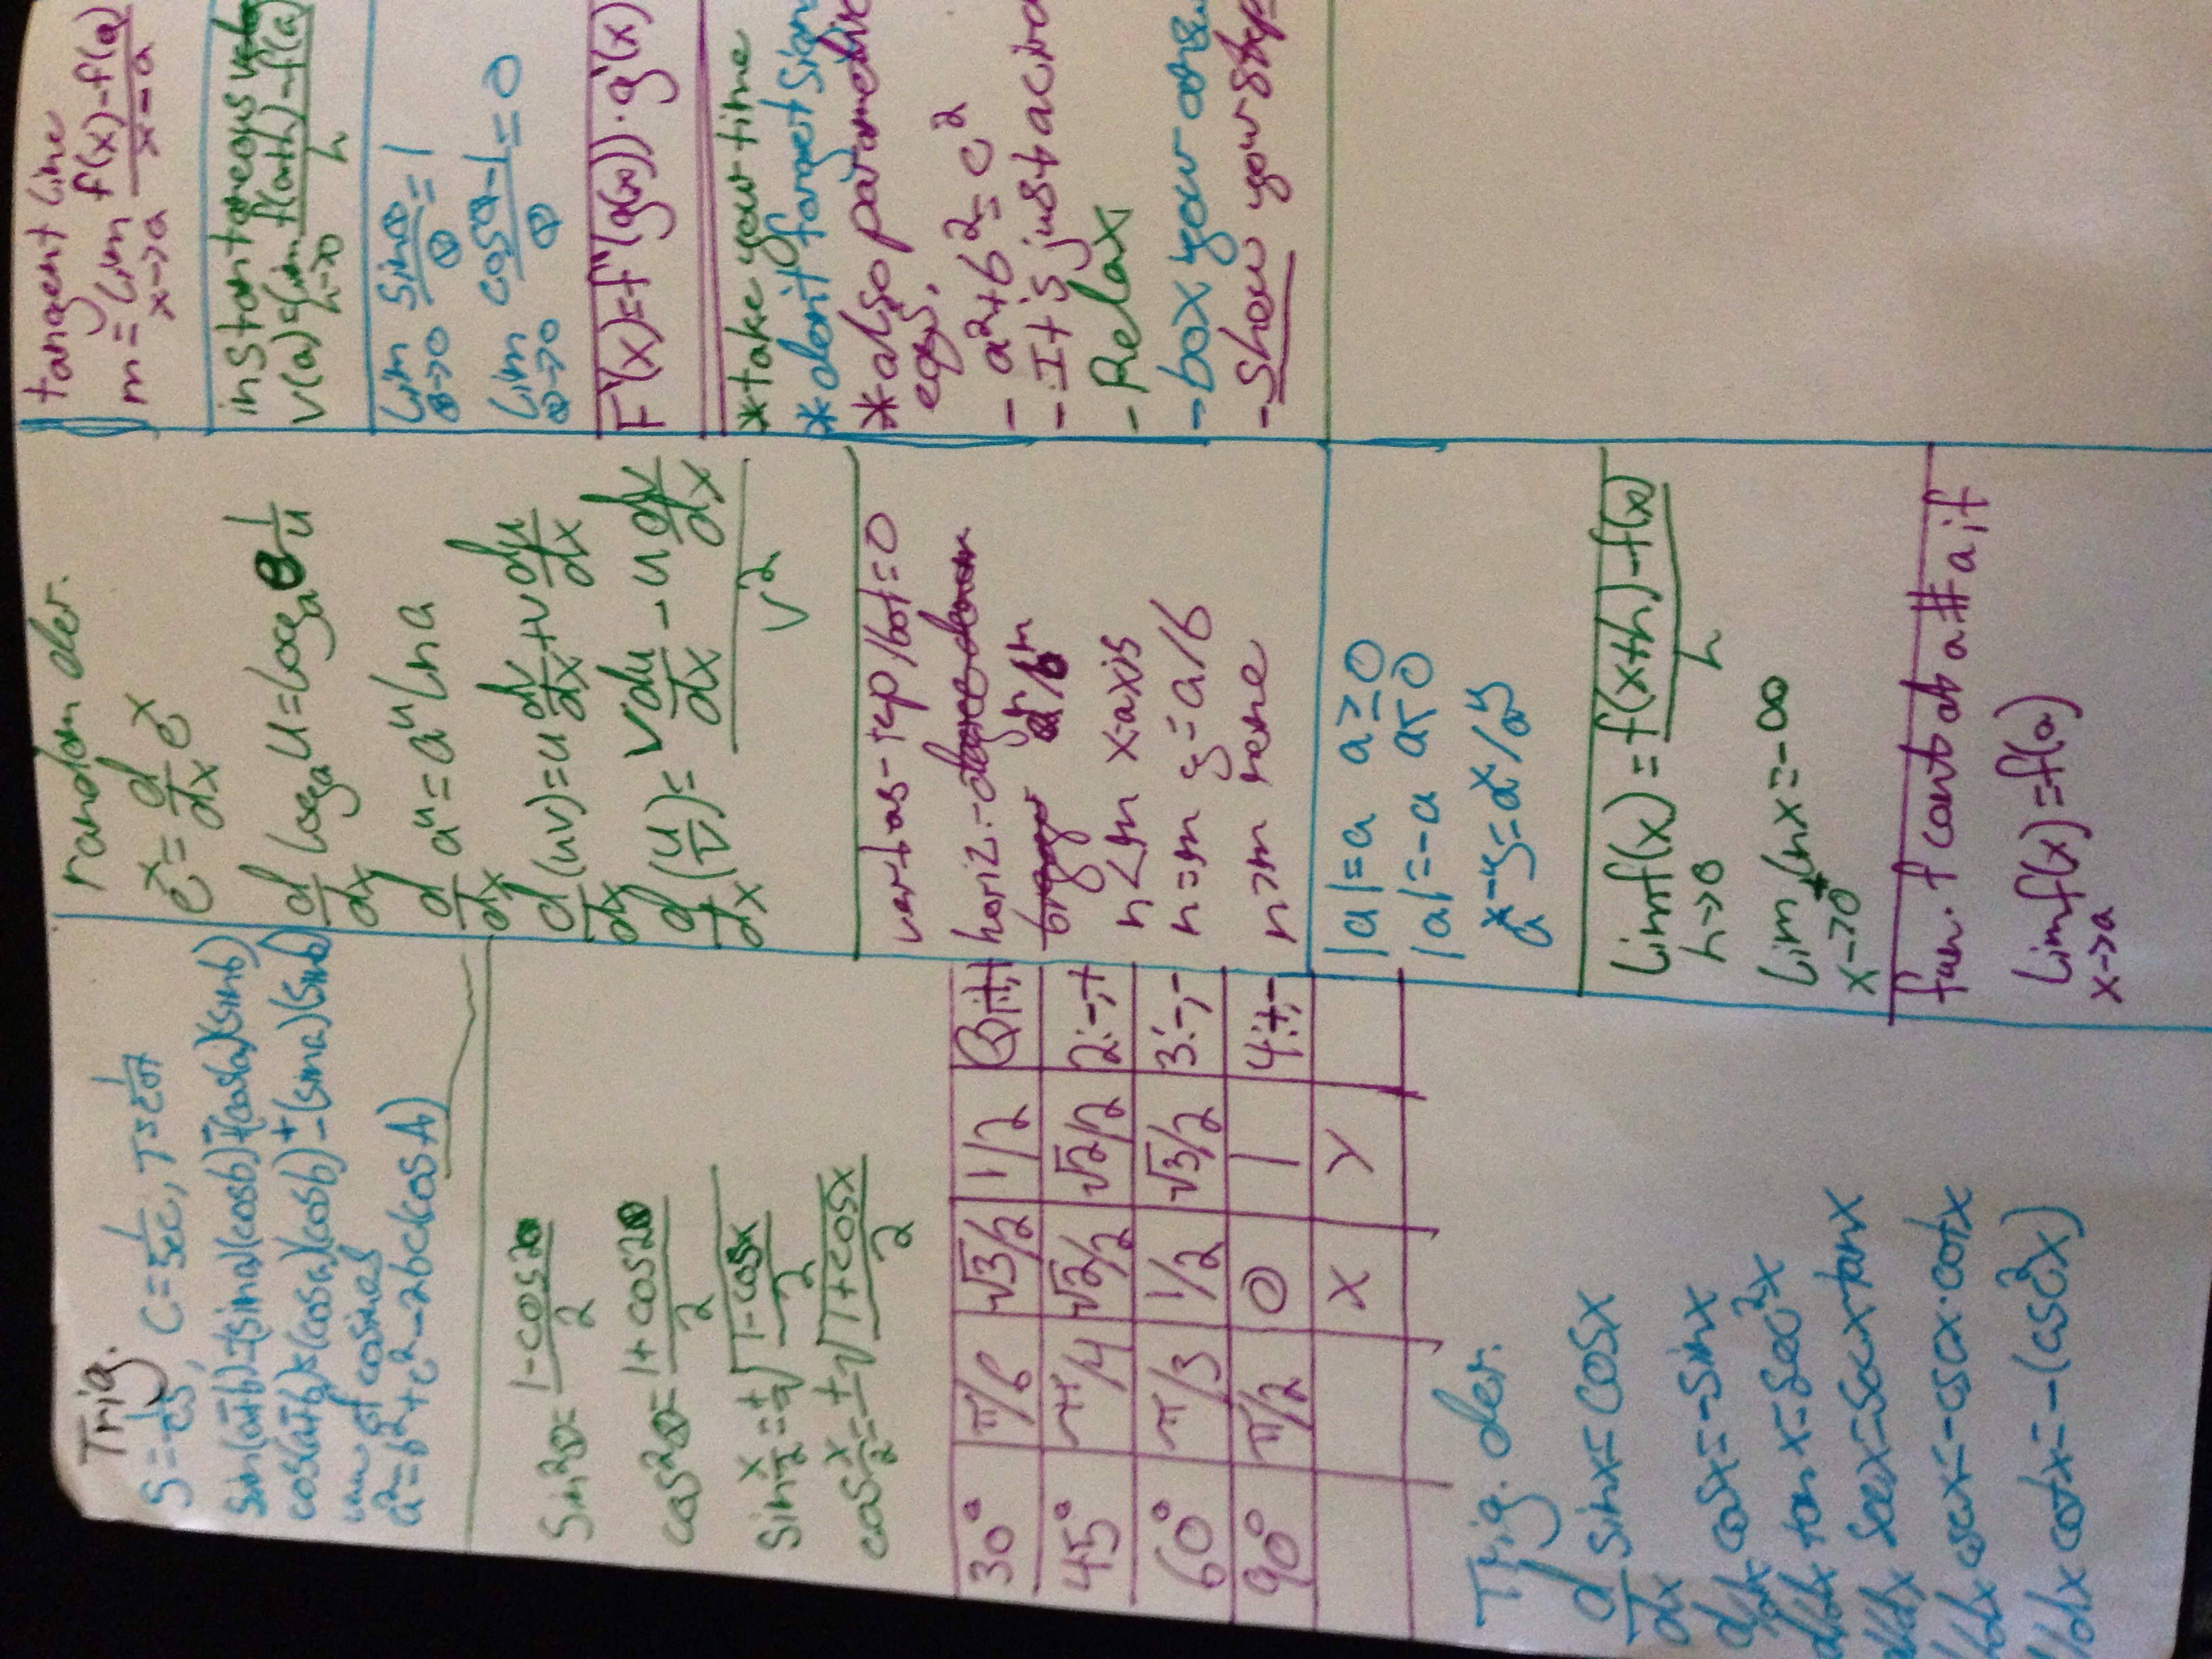 Trig.
S=1/cs, C=1/sec, T=1/cot
sin(a∓b)=(sina)(cosb)∓(cosa)(sinb)
cos(a∓b)=(cosa)(cosb)±(sina)(sinb)
law of cosines
a²=b²+c²-2bc(cosA)
sin²θ=1-cos2θ/2
cos²θ=1+cos2θ/2
sin x/2=±√1-cosx/2
cos x/2=±√1+cosx/2
30° π/6 √3/2 1/2 Q1:+,+
45° π/4 √2/2 √2/2 2:-,+
60° π/3 1/2 √3/2 3:-,-
90° π/2 0 1 4:+,-
X Y
Trig. der.
d/dx sinx=cosx
d/dx cosx=-sinx
d/dx tanx=sec²x
d/dx secx=secxtanx
d/dx cscx=-cscx·cotx
d/dx cotx=-(csc²x)
random der.
eˣ=d/dx eˣ
d/dx logₐu=logₐe 1/u
d/dx aᵘ=aᵘlna
d/dx(uv)=u dv/dx+v du/dx
d/dx(u/v)=v du/dx-u dv/dx / v²
vert as-rep/bot=0
horiz.-
n<m x axis
n=m y=a/b
n>m none
|a|=a a≥0
|a|=-a a<0
aˣ⁻ʸ=aˣ/aʸ
limf(x)=f(x+h)-f(x)/h
h→0
lim lnx=-∞
x→0⁺
fun. f cont at a # a if
limf(x)=f(a)
x→a
tangent line
m=lim f(x)-f(a)/x-a
x→a
instantaneous velo
v(a)=lim f(a+h)-f(a)/h
h→0
lim sinθ/θ=1
θ→0
lim cosθ-1/θ=0
θ→0
F'(x)=f'(g(x))·g'(x)
*take your time
*dont forget sign
*also parametric
eqs.
-a²+b²=c²
-It is just a circ
-Relax
-box your answ
-show your step